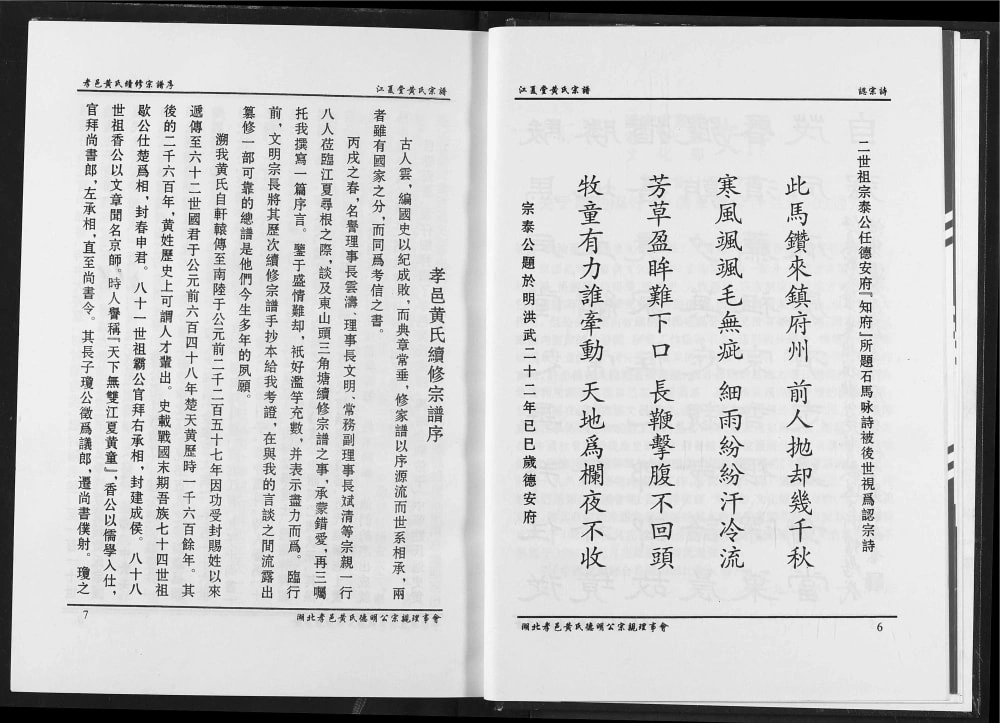 江夏堂黄氏宗譜
認宗詩
二世祖宗泰公任德安府『知府』所題石馬咏詩被後世視爲認宗詩
此馬鑽來鎮府州 前人抛却幾千秋
寒風颯颯毛無疵 細雨紛紛汗冷流
芳草盈眸難下口 長鞭擊腹不回頭
牧童有力誰牽動 天地爲欄夜不收
宗泰公題於明洪武二十二年已巳歲德安府
湖北孝邑黄氏德明公宗親理事會
6
孝邑黄氏續修宗譜序
江夏堂黄氏宗譜
孝邑黄氏續修宗譜序
古人雲，編國史以紀成敗，而典章常垂，修家譜以序源流而世系相承，兩
者雖有國家之分，而同爲考信之書。
丙戌之春，名譽理事長雲濤、理事長文明、常務副理事長斌清等宗親一行
八人莅臨江夏尋根之際，談及東山頭三角塘續修宗譜之事，承蒙錯愛，再三囑
托我撰寫一篇序言。鑒于盛情難却，祇好濫竽充數，并表示盡力而爲。臨行
前，文明宗長將其歷次續修宗譜手抄本給我考證，在與我的言談之間流露出
篡修一部可靠的總譜是他們今生多年的夙願。
溯我黄氏自軒轅傳至南陸于公元前二千二百五十七年因功受封賜姓以來
遞傳至六十二世國君于公元前六百四十八年楚天黄歷時一千六百餘年。其
後的二千六百年，黄姓歷史上可謂人才輩出。史載戰國末期吾族七十四世祖
歇公仕楚爲相，封春申君。八十一世祖霸公官拜右承相，封建成侯。八十八
世祖香公以文章聞名京師。時人譽稱『天下無雙江夏黄童』，香公以儒學入仕，
官拜尚書郎，左承相，直至尚書令。其長子瓊公徵爲議郎，遷尚書僕射。瓊之
7
湖北孝邑黄氏德明公宗親理事會